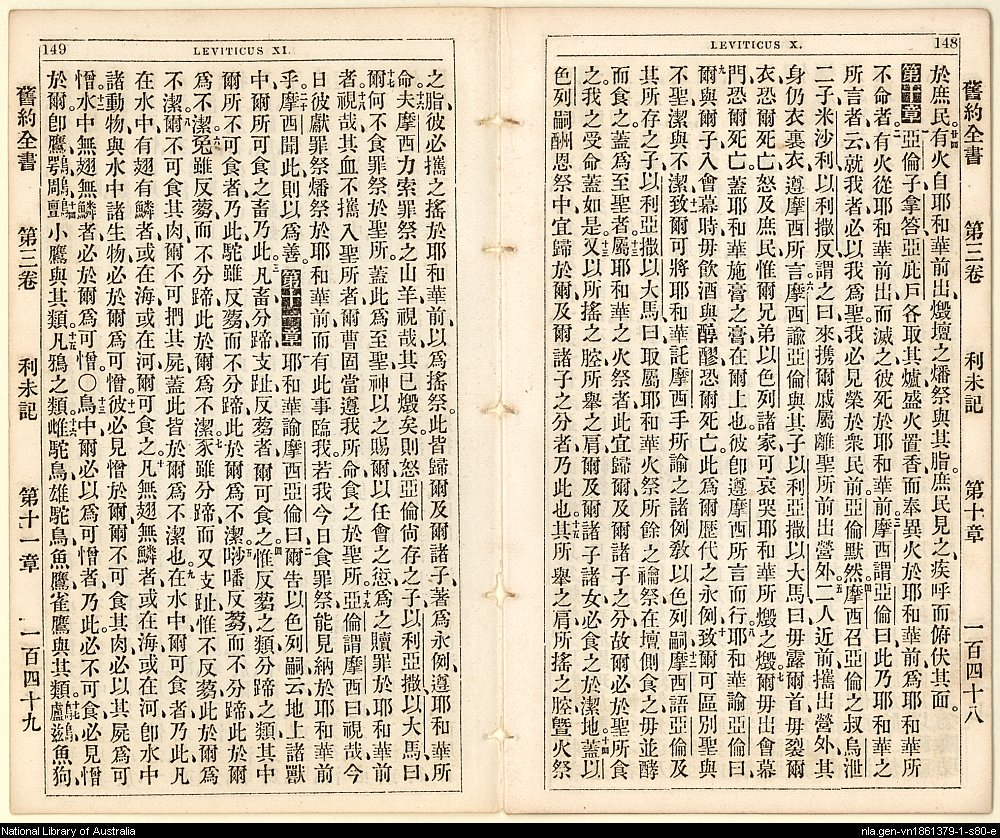 148
LEVITICUS X.
舊約全書 第三卷 利未記 第十章 一百四十八
於庶民。有火自耶和華前出、燬壇之燔祭與其脂。庶民見之、疾呼而俯伏其面。
第十章 亞倫子拿答亞庇戶各取其爐、盛火置香、而奉異火於耶和華前、爲耶和華所
不命者。有火從耶和華前出而滅之、彼死於耶和華前。摩西謂亞倫曰、此乃耶和華之
所言者云、就我者必以我爲聖、我必見榮於衆民前。亞倫默然。摩西召亞倫之叔烏泄
二子米沙利以利撒反謂之曰、來攜爾戚屬離聖所前出營外。二人近前攜出營外、其
身仍衣裏衣、遵摩西所言。摩西諭亞倫與其子以利亞撒以大馬曰、毋露爾首、毋裂爾
衣、恐爾死亡、怒及庶民、惟爾兄弟以色列諸家、可哀哭耶和華所燬之燬。爾毋出會幕
門、恐爾死亡、蓋耶和華施膏之膏在爾上也。彼卽遵摩西所言而行。耶和華諭亞倫曰、
爾與爾子入會幕時、毋飲酒與醇醪、恐爾死亡、此爲爾歷代之永例。致爾可區別聖與
不聖、潔與不潔、致爾可將耶和華託摩西手所諭之諸例、敎以色列嗣。摩西語亞倫及
其所存之子以利亞撒以大馬曰、取屬耶和華火祭所餘之禴祭、在壇側食之、毋並酵
而食之、蓋爲至聖者、屬耶和華之火祭者、此宜歸爾及爾諸子之分、故爾必於聖所食
之、我之受命蓋如是。又以所搖之腔、所舉之肩、爾及爾諸子諸女必食之於潔地、蓋以
色列嗣酬恩祭中、宜歸於爾及爾諸子之分者、乃此也。其所舉之肩、所搖之腔、曁火祭
149
LEVITICUS XI.
之脂、彼必攜之搖於耶和華前、以爲搖祭。此皆歸爾及爾諸子、著爲永例、遵耶和華所
命。夫摩西力索罪祭之山羊、視哉、其已燬矣、則怒亞倫尙存之子以利亞撒以大馬曰、
爾何不食罪祭於聖所、蓋此爲至聖、神以之賜爾、以任會之愆、爲之贖罪於耶和華前
者。視哉、其血不攜入聖所者、爾曹固當遵我所命、食之於聖所。亞倫謂摩西曰、視哉、今
日彼獻罪祭燔祭於耶和華前、而有此事臨我、若我今日食罪祭、能見納於耶和華前
乎。摩西聞此、則以爲善。第十一章 耶和華諭摩西亞倫曰、爾告以色列嗣云、地上諸獸
中、爾所可食之畜乃此。凡畜分蹄支趾反芻者、爾可食之。惟反芻之類、分蹄之類、其中
爾所不可食者、乃此、駝雖反芻而不分蹄、此於爾爲不潔。反芻而不分蹄、此於爾
爲不潔。兔雖反芻而不分蹄、此於爾爲不潔。豕雖分蹄而又支趾、惟不反芻、此於爾爲
不潔。爾不可食其肉、爾不可捫其屍、蓋此皆於爾爲不潔也。在水中爾可食者、乃此、凡
在水中有翅有鱗者、或在海、或在河、爾可食之。凡無翅無鱗者、或在海或在河、卽水中
諸動物與水中諸生物、必於爾爲可憎。彼必見憎於爾、爾不可食其肉、必以其屍爲可
憎。水中無翅無鱗者、必於爾爲可憎。○鳥中爾必以爲可憎者、乃此、必不可食、必見憎
於爾、卽鷹、鶚、小鷹與其類、凡鴉之類、雌駝鳥、雄駝鳥、魚鷹、雀鷹與其類、鸕鶿、魚狗
舊約全書 第三卷 利未記 第十一章 一百四十九
National Library of Australia
nla.gen-vn1861379-1-s80-e